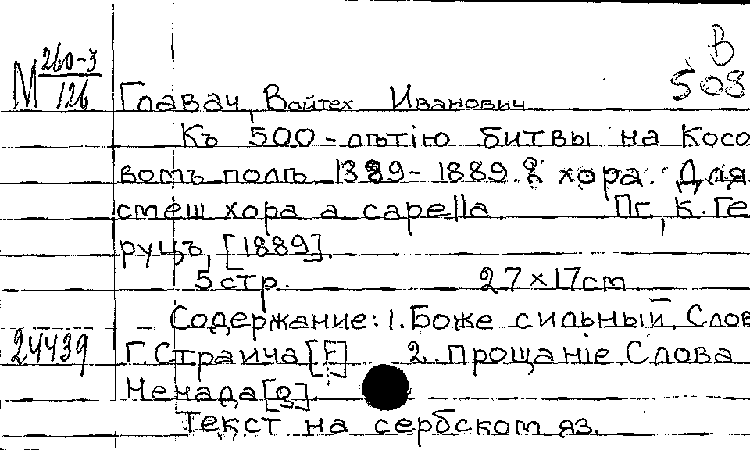 М 260-3/126
В 508
Главач, Войтех Иванович
Къ 500-лѣтію битвы на Косо
вомъ полѣ 1389-1889. 2 хора. Для
смеш хора a capella. Пг, К. Ге
руцъ, [1889].
5 стр. 27×17cm
Содержание: 1. Боже сильный. Слов
24439 Г. Страича [F] 2. Прощаніе. Слова
Ненада [g].
Текст на сербском яз.